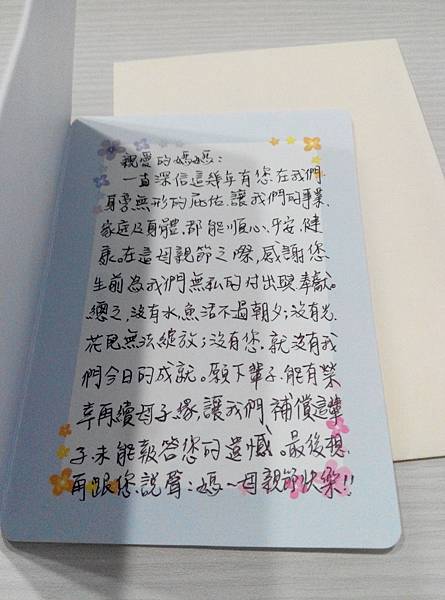 親愛的媽媽：
一直深信這幾年有您在我們
身旁無形的庇佑、讓我們的事業、
家庭及身體、都能順心、平安、健
康。在這母親節之際、感謝您
生前為我們無私的付出與奉獻。
總之，沒有水，魚活不過朝夕；沒有光，
花兒無法綻放；沒有您，就沒有我
們今日的成就。願下輩子能有榮
幸再續母子緣，讓我們補償這輩
子未能報答您的遺憾。最後想
再跟您說聲：媽～母親節快樂!!